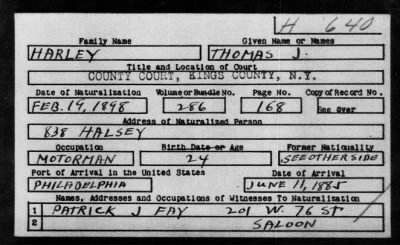 H 640
Family Name Given Name or Names
HARLEY THOMAS J.
Title and Location of Court
COUNTY COURT, KINGS COUNTY, N.Y.
Date of Naturalization Volume or Bundle No. Page No. Copy of Record No.
FEB. 19, 1898 286 168 See Over
Address of Naturalized Person
838 HALSEY
Occupation Birth Date or Age Former Nationality
MOTORMAN 24 SEE OTHER SIDE
Port of Arrival in the United States Date of Arrival
PHILADELPHIA JUNE 11, 1885
Names, Addresses and Occupations of Witnesses To Naturalization
1 PATRICK J FAY 201 W. 76 ST
2 SALOON